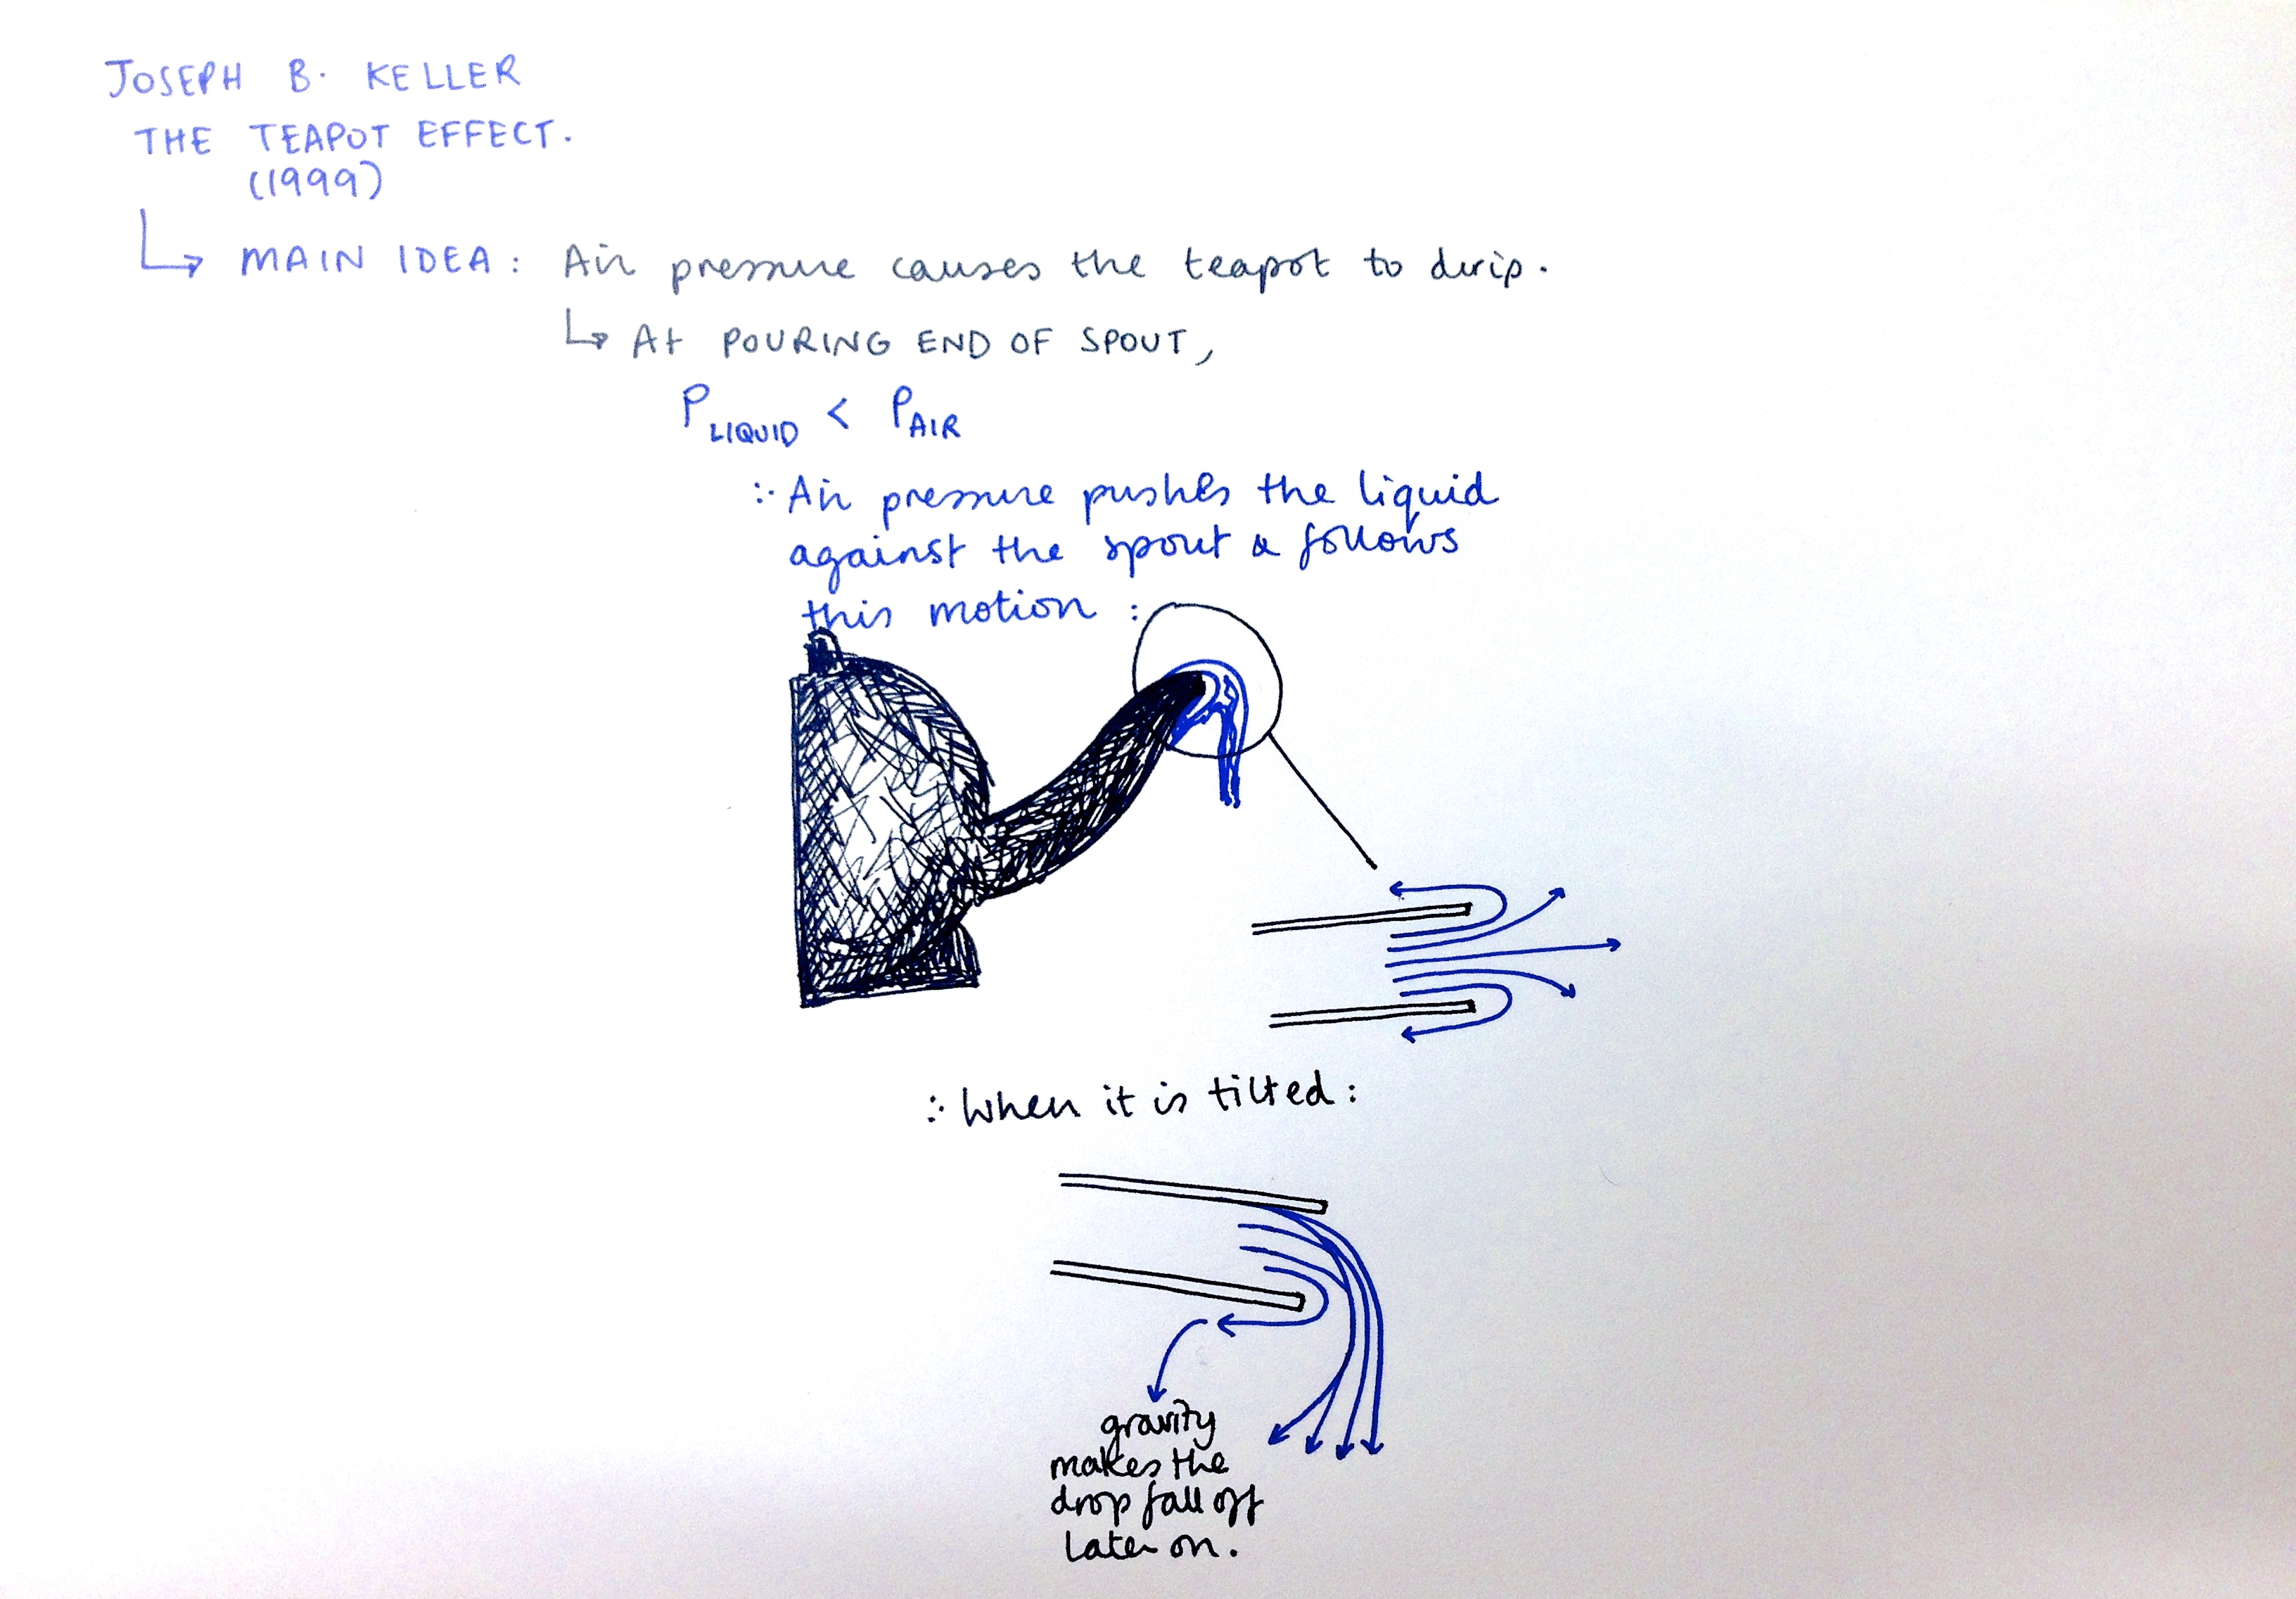 JOSEPH B. KELLER
THE TEAPOT EFFECT.
(1999)
↳ MAIN IDEA: Air pressure causes the teapot to drip.
↳ At POURING END OF SPOUT,
P LIQUID < P AIR
∴ Air pressure pushes the liquid
against the spout & follows
this motion :
∴ When it is tilted:
gravity
makes the
drop fall off
later on.